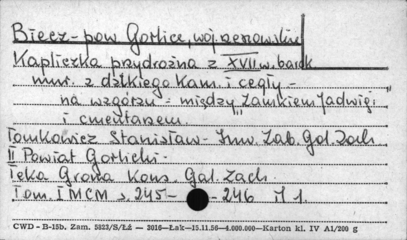 Biecz - pow Gorlice, woj. rzeszowskie
Kapliczka przydrożna z XVII w. barok
mur. z dzikiego kam. i cegły -
na wzgórzu - między "zamkiem Jadwigi"
i cmentarzem.
Tomkowicz Stanisław - Inw. Zab. Gal. Zach.
II Powiat Gorlicki.
Teka Grona Kons. Gal. Zach.
Tom. I MCM s. 245 - - 246 il 1.
CWD - B-15b. Zam. 5823/S/Łż — 3016—Łak—15.11.56—4.000.000—Karton kl. IV A1/200 g